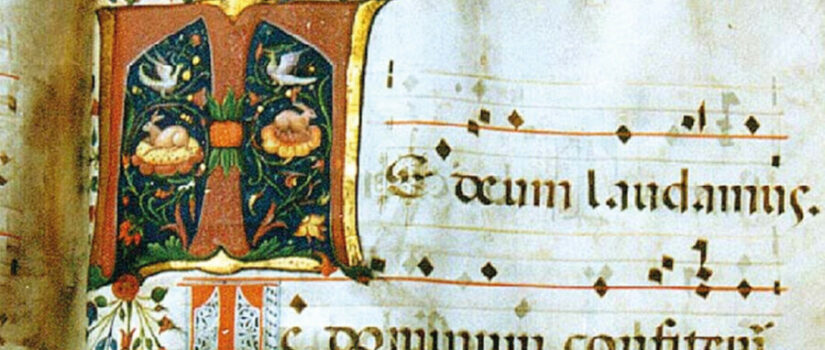 TE deum laudamus.
Te dominum confitem